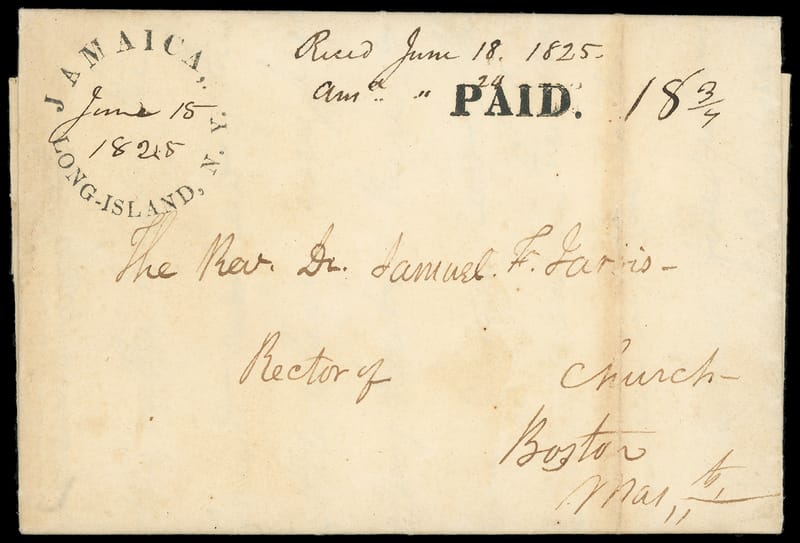 JAMAICA,
LONG-ISLAND, N.Y.
June 15
1825
Recd June 18. 1825.
Ansd " 20
PAID.
18 3/4
The Rev. Dr. Samuel. F. Jarvis-
Rector of Church-
Boston
Mas,,ts,